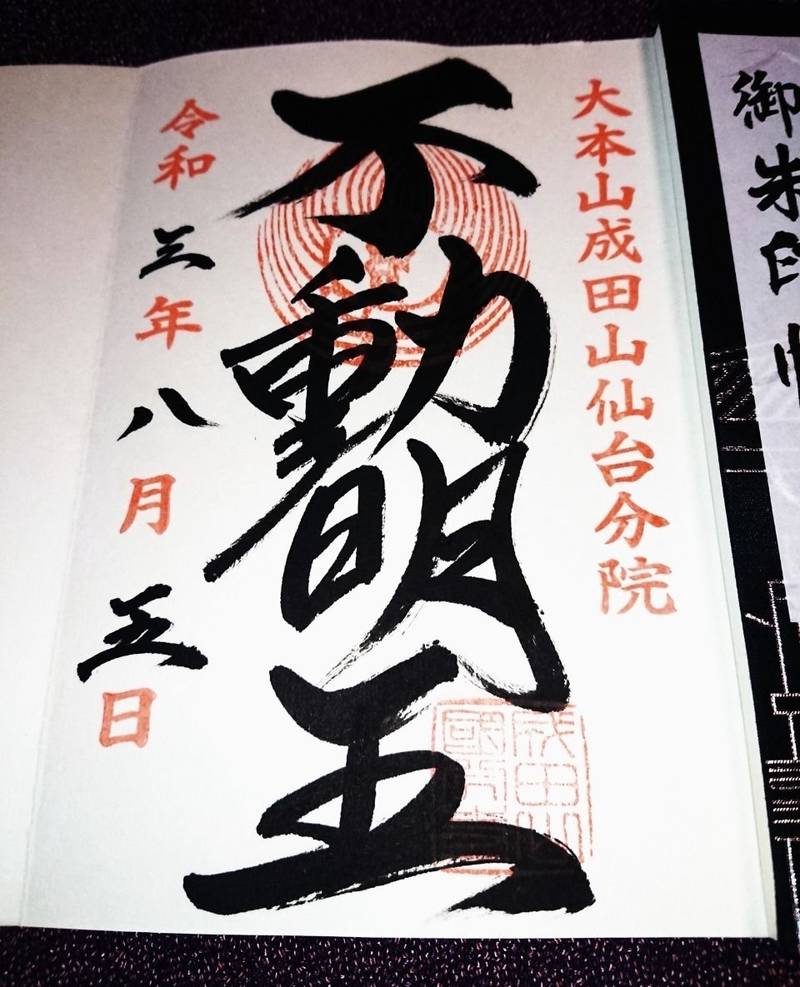 御朱印
大本山成田山仙台分院
不動明王
令和三年八月五日